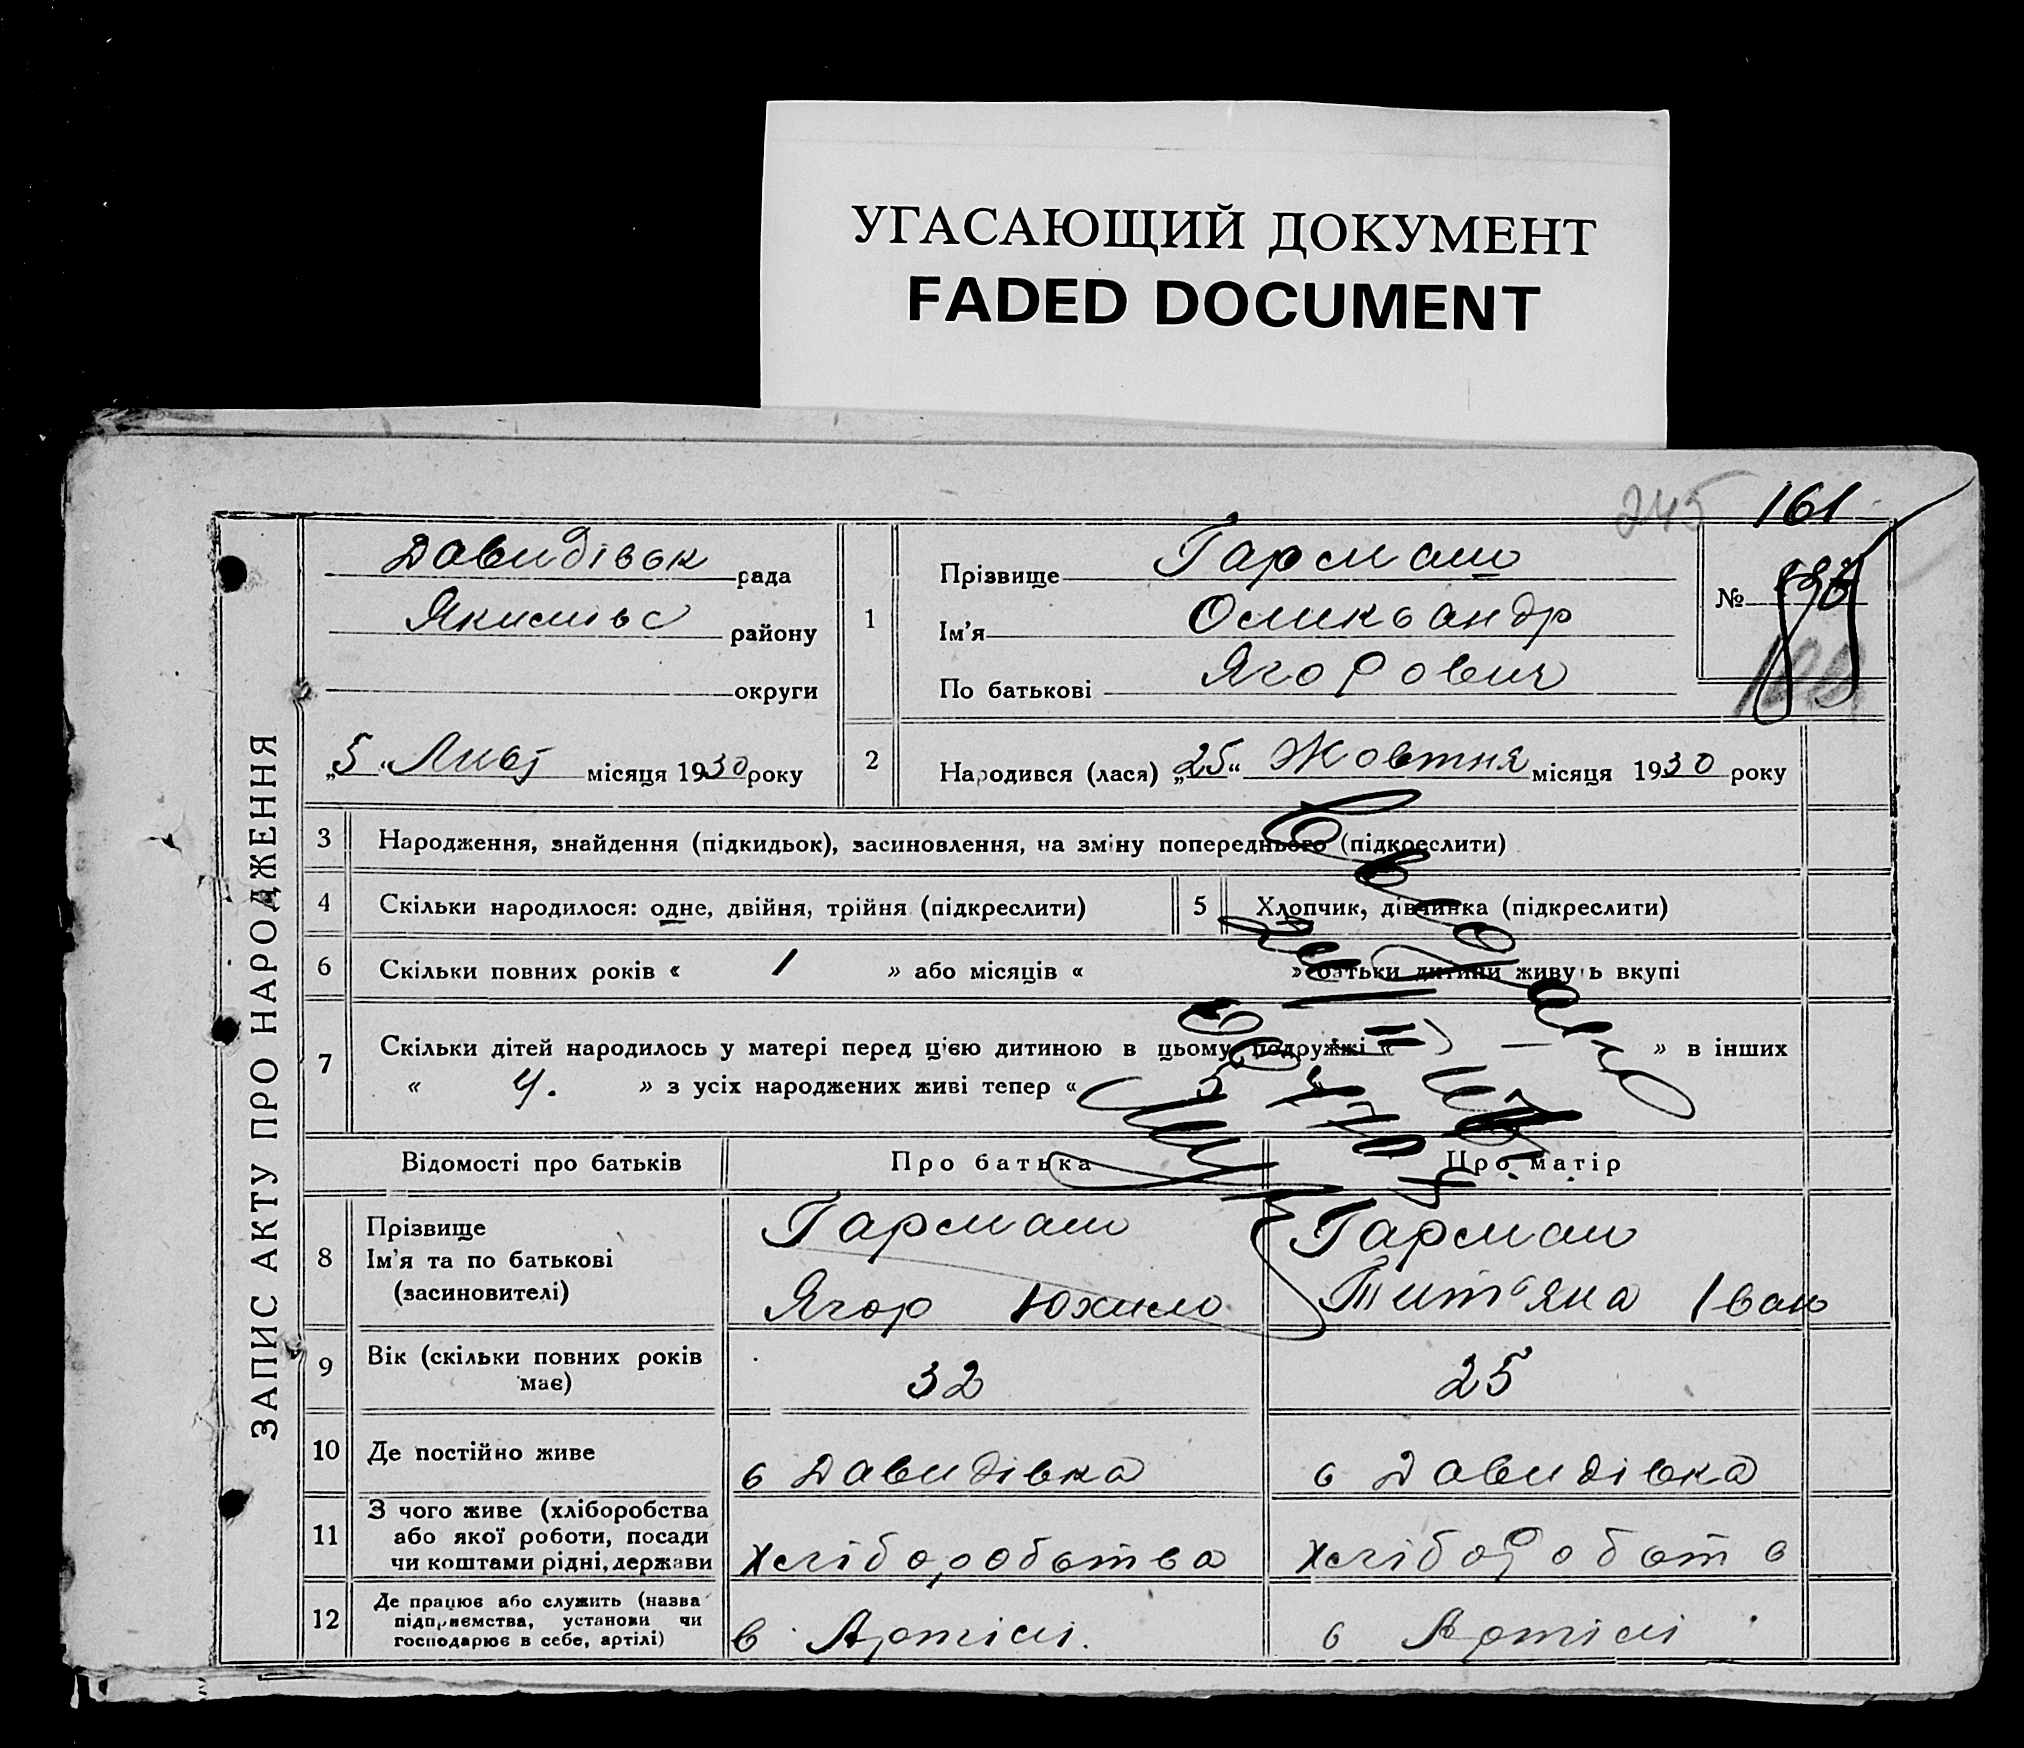 УГАСАЮЩИЙ ДОКУМЕНТ
FADED DOCUMENT
245 161
ЗАПИС АКТУ ПРО НАРОДЖЕННЯ
Давидівск рада
Якимівс району
округи
„5“ Лист місяця 1930 року
1 Прізвище Гармаш
Ім'я
По батькові Ягорович
№
2 Народився (лася) „25“ Жовтня місяця 1930 року
3 Народження, знайдення (підкидьок), засиновлення, на зміну попереднього (підкреслити)
4 Скільки народилося: одне, двійня, трійня (підкреслити) 5 Хлопчик, дівчинка (підкреслити)
6 Скільки повних років « 1 » або місяців « » батьки дитини живуть вкупі
7 Скільки дітей народилось у матері перед цією дитиною в цьому подружжі « » в інших
« 4. » з усіх народжених живі тепер «
Відомості про батьків Про батька Про матір
8 Прізвище Гармаш Гармаш
Ім'я та по батькові
(засиновителі) Ягор Юхимо Тит'яна Іван
9 Вік (скільки повних років має) 32 25
10 Де постійно живе с Давидівка с Давидівка
11 З чого живе (хліборобства
або якої роботи, посади
чи коштами рідні, держави хліборобства хліборобств
12 Де працює або служить (назва
підприємства, установи чи
господарює в себе, артілі) в Артілі. в Артілі